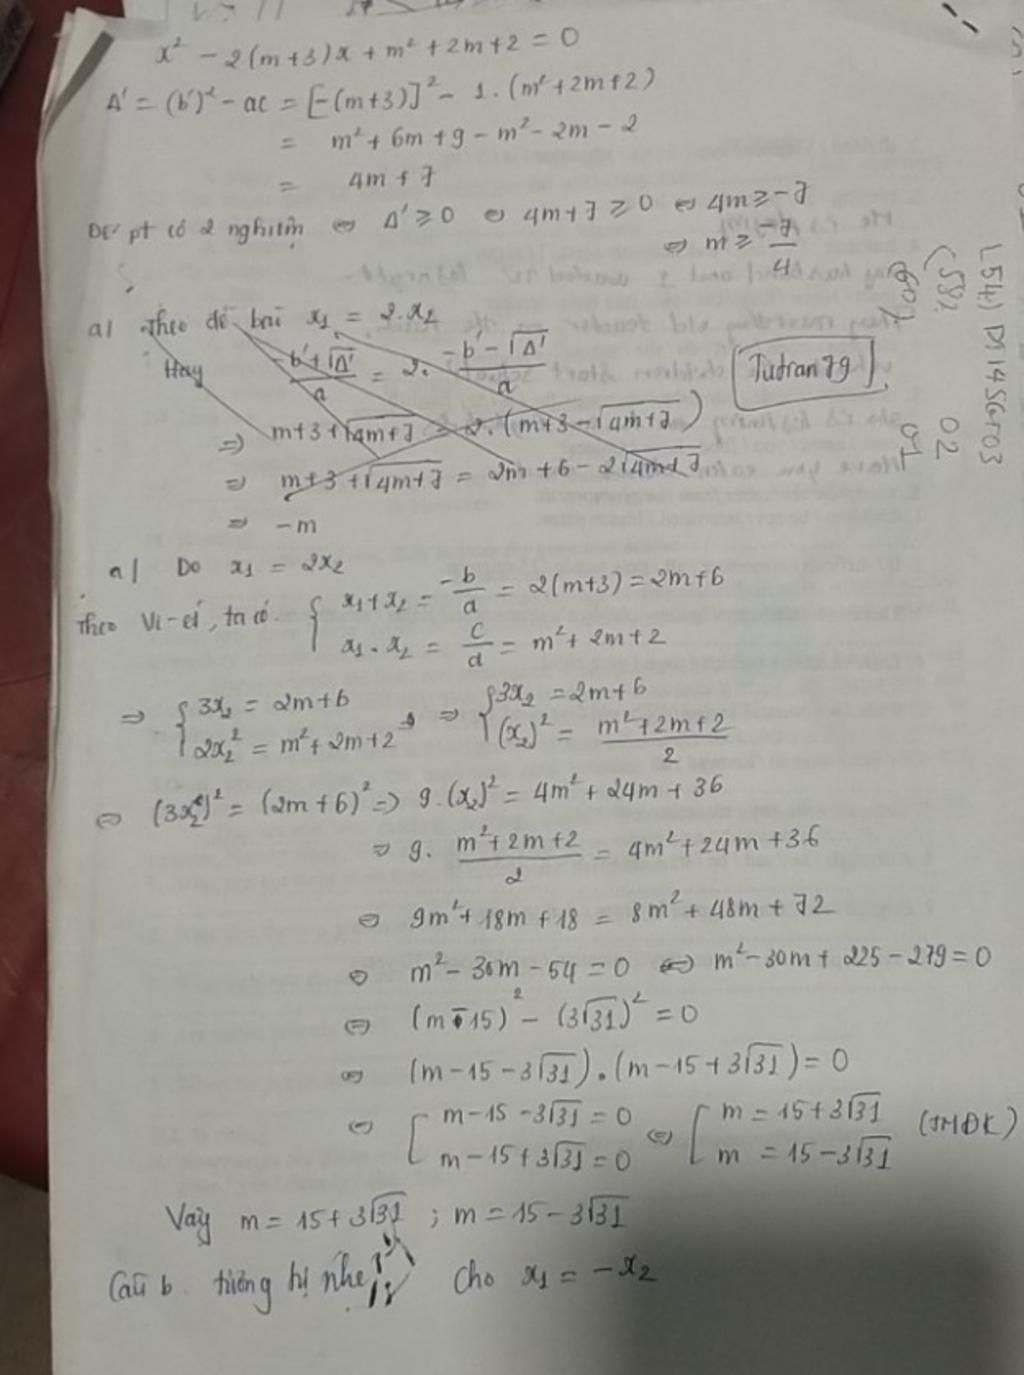 x² - 2(m+3)x + m² + 2m + 2 = 0
Δ' = (b')² - ac = [-(m+3)]² - 1.(m²+2m+2)
= m² + 6m + 9 - m² - 2m - 2
= 4m + 7
Để pt có 2 nghiệm ⇔ Δ' ≥ 0 ⇔ 4m+7 ≥ 0 ⇔ 4m ≥ -7
⇔ m ≥ -7/4
a) Theo đề bài x₁ = 2.x₂
Hay (-b'+√Δ')/a = 2. (-b'-√Δ')/a
Tutran79
⇒ m+3+√(4m+7) = 2.(m+3-√(4m+7))
⇒ m+3+√(4m+7) = 2m+6-2√(4m+7)
⇒ -m
a) Do x₁ = 2x₂
Theo Vi-ét, ta có { x₁+x₂ = -b/a = 2(m+3) = 2m+6
x₁.x₂ = c/a = m²+2m+2
⇒ { 3x₂ = 2m+6 ⇒ { 3x₂ = 2m+6
2x₂² = m²+2m+2 (x₂)² = (m²+2m+2)/2
⇔ (3x₂)² = (2m+6)² ⇒ 9.(x₂)² = 4m² + 24m + 36
⇒ 9. (m²+2m+2)/2 = 4m²+24m+36
⇔ 9m²+18m+18 = 8m²+48m+72
⇔ m² - 30m - 54 = 0 ⇔ m² - 30m + 225 - 279 = 0
⇔ (m-15)² - (3√31)² = 0
⇔ (m-15-3√31).(m-15+3√31) = 0
⇔ [ m-15-3√31 = 0 ⇔ [ m = 15+3√31 (TMĐK)
m-15+3√31 = 0 m = 15-3√31
Vậy m = 15+3√31 ; m = 15-3√31
Câu b. tương tự nhé Cho x₁ = -x₂
L54) D114SGF03
(59)2 02
60) 01